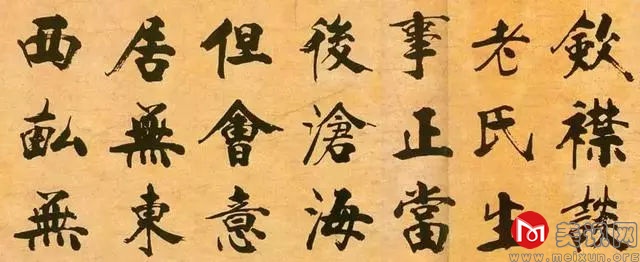 斂襟談
老氏生
事正當
後滄海
但會意
居無東
西畝無
美讯网
www.meixun.org